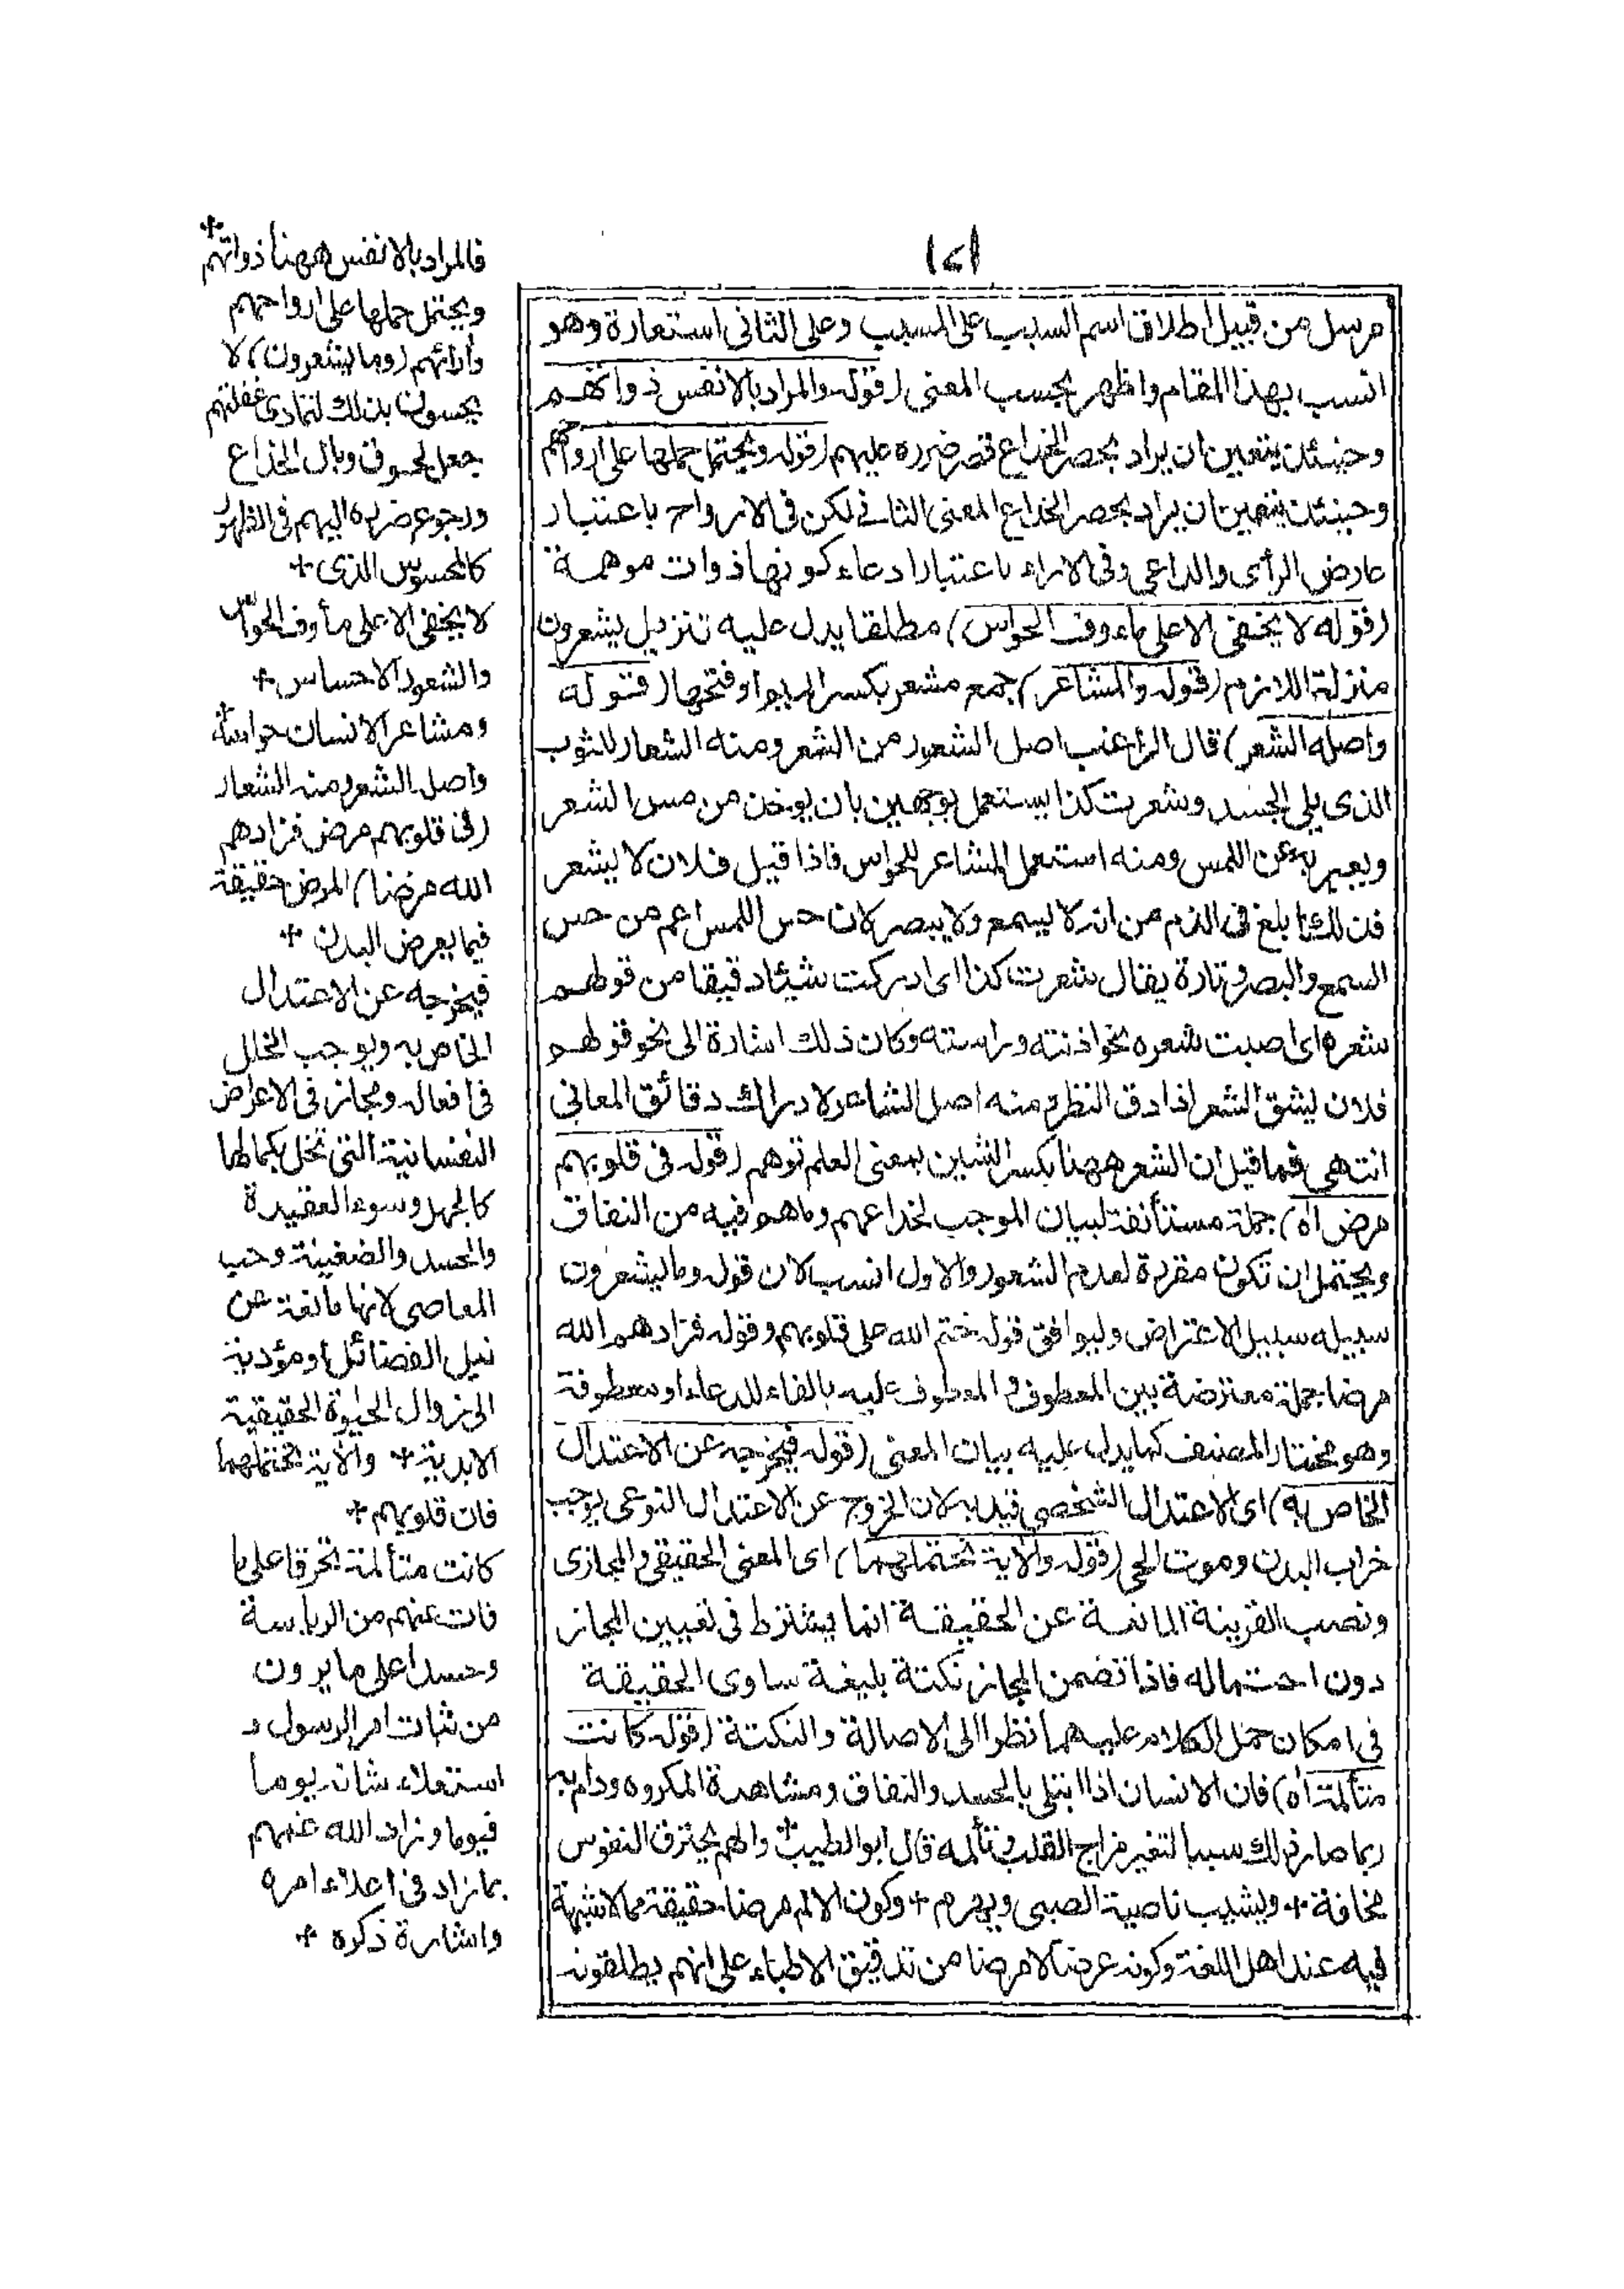 ١٢١
مرسل من قبيل اطلاق اسم السبب على المسبب وعلى الثانى استعارة وهو
انسب بهذا المقام واظهر بحسب المعنى (قوله والمراد بالانفس ذواتهم
وحينئذ يتعين ان يراد بحصر الخداع قصر ضرره عليهم (قوله ويحتمل حملها على ارواحهم
وحينئذ يتعين ان يراد بحصر الخداع المعنى الثانى لكن فى الارواح باعتبار
عارض الرأى والداعى وفى الاراء باعتبار ادعاء كونها ذوات موهمة
(قوله لا يخفى الا على ماءوف الحواس) مطلقا يدل عليه تنزيل يشعرون
منزلة اللازم (قوله والمشاعر) جمع مشعر بكسر الميم او فتحها (قوله
واصله الشعر) قال الراغب اصل الشعور من الشعر ومنه الشعار للثوب
الذى يلى الجسد وشعرت كذا يستعمل بوجهين بان يوخذ من مس الشعر
ويعبر به عن اللمس ومنه استعمل المشاعر للحواس فاذا قيل فلان لا يشعر
فذلك ابلغ فى الذم من انه لا يسمع ولا يبصر لان حس اللمس اعم من حس
السمع والبصر وتارة يقال شعرت كذا اى ادركت شيئا دقيقا من قولهم
شعره اى اصبت شعره نحو اذنته وراسته وكان ذلك اشارة الى نحو قولهم
فلان يشق الشعر اذا دق النظر ومنه اصل الشاعر لادراك دقائق المعانى
انتهى فما قيل ان الشعر ههنا بكسر الشين بمعنى العلم توهم (قوله فى قلوبهم
مرض اه) جملة مستأنفة لبيان الموجب لخداعهم وماهم فيه من النفاق
ويحتمل ان تكون مقررة لعدم الشعور والاول انسب لان قوله وما يشعرون
سبيله سبيل الاعتراض وليوافق قوله ختم الله على قلوبهم وقوله فزادهم الله
مرضا جملة معترضة بين المعطوف والمعطوف عليه بالفاء للدعاء او معطوفة
وهو مختار المصنف كما يدل عليه بيان المعنى (قوله فيخرجه عن الاعتدال
الخاص به) اى الاعتدال الشخصى قيد به لان الخروج عن الاعتدال النوعى يوجب
خراب البدن وموت الحى (قوله والاية تحتملهما) اى المعنى الحقيقى والمجازى
ونصب القرينة المانعة عن الحقيقة انما يشترط فى تعيين المجاز
دون احتماله فاذا تضمن المجاز نكتة بليغة ساوى الحقيقة
فى امكان حمل الكلام عليهما نظرا الى الاصالة والنكتة (قوله كانت
متألمة اه) فان الانسان اذا ابتلى بالحسد والنفاق ومشاهدة المكروه ودام به
ربما صار ذلك سببا لتغير مزاج القلب وتألمه قال ابو الطيب والهم يخترق النفوس
مخافة + ويشيب ناصية الصبى ويهرم + وكون الالم مرضا حقيقة مما لا شبهة
فيه عند اهل اللغة وكونه عرضا لا مرضا من تدقيق الاطباء على انهم يطلقونه
فالمراد بالانفس ههنا ذواتهم +
ويحتمل حملها على ارواحهم
وأرائهم (وما يشعرون) لا
يحسون بذلك لتمادى غفلتهم
جعل لحوق وبال الخداع
ورجوع ضرره اليهم فى الظهور
كالمحسوس الذى +
لا يخفى الا على مأوف الحواس
والشعور الاحساس +
ومشاعر الانسان حواسه +
واصل الشعر ومنه الشعار
(فى قلوبهم مرض فزادهم
الله مرضا) المرض حقيقة
فيما يعرض البدن +
فيخرجه عن الاعتدال
الخاص به ويوجب الخلل
فى افعاله ومجاز فى الاعراض
النفسانية التى تخل بكمالها
كالجهل وسوء العقيدة
والحسد والضغينة وحب
المعاصى لانها مانعة عن
نيل الفضائل او مؤدية
الى زوال الحيوة الحقيقية
الابدية + والاية تحتملهما
فان قلوبهم +
كانت متألمة تحرقا على ما
فات عنهم من الرياسة
وحسدا على ما يرون
من ثبات امر الرسول و
استعلاء شانه يوما
فيوما وزاد الله غمهم
بما زاد فى اعلاء امره
واشارة ذكره +